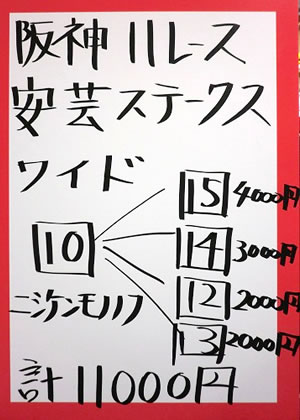 阪神11レース
安芸ステークス
ワイド
15 4000円
10
14 3000円
12 2000円
ニシケンモノノフ
13 2000円
計11000円